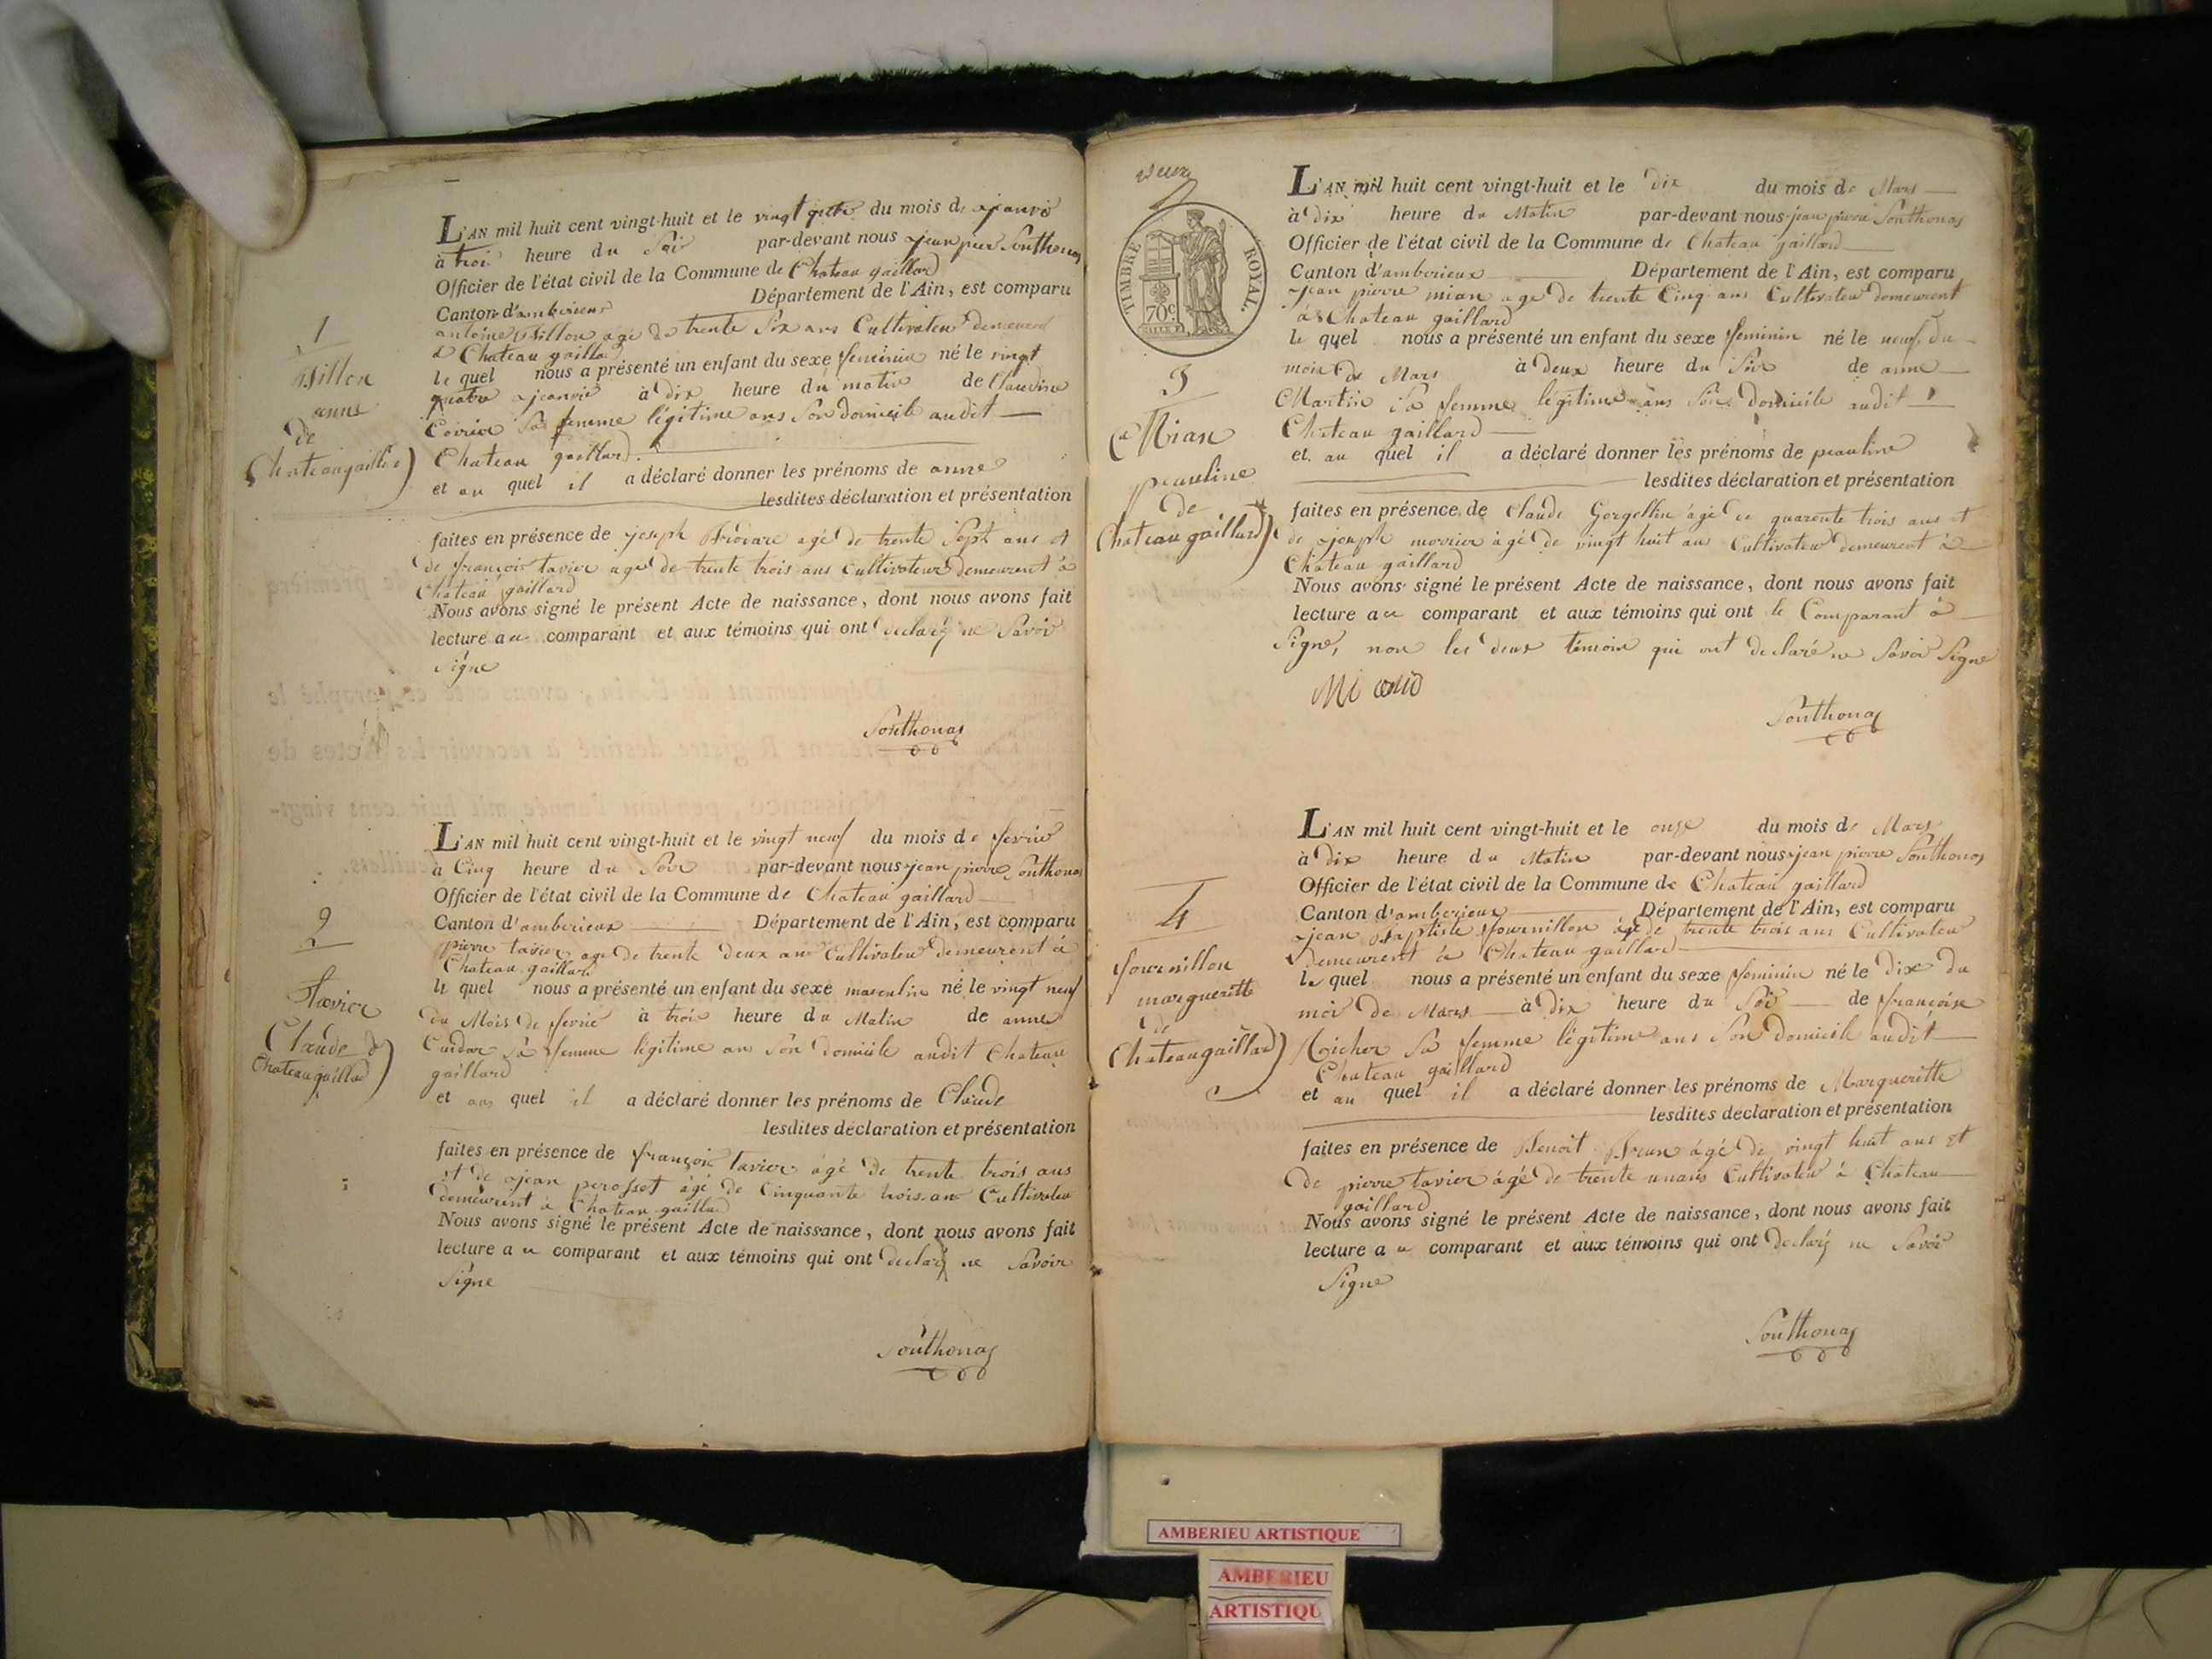 1
anne
de
Chateaugaillard
L'AN mil huit cent vingt-huit et le vingt quatre du mois de janvié
à trois heure du Soir par-devant nous jean pierre Southonas
Officier de l'état civil de la Commune de Chateau gaillard
Canton d'amberieux Département de l'Ain, est comparu
antoine agé de trente Six ans Cultivateur demeurent
à Chateau gaillard
le quel nous a présenté un enfant du sexe feminin né le vingt
quatre jeanvié à dix heure du matin de Claudine
Sa femme légitime ans Son domicile audit
Chateau gaillard.
et au quel il a déclaré donner les prénoms de anne
lesdites déclaration et présentation
faites en présence de joseph agé de trente Sept ans et
de françois tavier agé de trente trois ans Cultivateur demeurent à
Chateau gaillard
Nous avons signé le présent Acte de naissance, dont nous avons fait
lecture au comparant et aux témoins qui ont declaré ne Savoir
Signe
Southonas
2
Tavier
Claude de
Chateaugaillard
L'AN mil huit cent vingt-huit et le vingt neuf du mois de fevrié
à Cinq heure du Soir par-devant nous jean pierre Southonas
Officier de l'état civil de la Commune de Chateau gaillard
Canton d'amberieux Département de l'Ain, est comparu
pierre tavier age de trente deux ans Cultivateur demeurent à
Chateau gaillard
le quel nous a présenté un enfant du sexe masculin né le vingt neuf
du Mois de fevrié à trois heure du Matin de anne
Sa femme légitime ans Son domicile audit Chateau
gaillard
et au quel il a déclaré donner les prénoms de Claude
lesdites déclaration et présentation
faites en présence de françois tavier âgé de trente trois ans
et de jean perosset âgé de Cinquante trois ans Cultivateur
demeurent à Chateau gaillard
Nous avons signé le présent Acte de naissance, dont nous avons fait
lecture au comparant et aux témoins qui ont declaré ne Savoir
Signe
Southonas
TIMBRE ROYAL.
70c.
3
Mian
peauline
de
Chateau gaillard
L'AN mil huit cent vingt-huit et le dix du mois de Mars
à dix heure du Matin par-devant nous jean pierre Southonas
Officier de l'état civil de la Commune de Chateau gaillard
Canton d'amberieux Département de l'Ain, est comparu
jean pierre mian age de trente Cinq ans Cultivateur demeurent
à Chateau gaillard
le quel nous a présenté un enfant du sexe feminin né le neuf du
mois de Mars à deux heure du Soir de anne
Martin Sa femme légitime ans Son domicile audit
Chateau gaillard
et au quel il a déclaré donner les prénoms de peauline
lesdites déclaration et présentation
faites en présence de Claude Gorgellin âgé de quarente trois ans et
de joseph âgé de vingt huit ans Cultivateur demeurent à
Chateau gaillard
Nous avons signé le présent Acte de naissance, dont nous avons fait
lecture au comparant et aux témoins qui ont le Comparant à
Signé, non les deux temoin qui ont declaré ne Savoir Signe
Southonas
4
fournillon
margueritte
de
Chateaugaillard
L'AN mil huit cent vingt-huit et le onze du mois de Mars
à dix heure du Matin par-devant nous jean pierre Southonas
Officier de l'état civil de la Commune de Chateau gaillard
Canton d'amberieux Département de l'Ain, est comparu
jean Baptiste fournillon âgé de trente trois ans Cultivateur
demeurent à Chateau gaillard
le quel nous a présenté un enfant du sexe feminin né le dix du
moi de Mars à dix heure du Soir de françoise
Sa femme légitime ans Son domicile audit
Chateau gaillard
et au quel il a déclaré donner les prénoms de Margueritte
lesdites declaration et présentation
faites en présence de Benoit Brun âgé de vingt huit ans et
de pierre tavier âgé de trente un ans Cultivateur à Chateau
gaillard
Nous avons signé le présent Acte de naissance, dont nous avons fait
lecture au comparant et aux témoins qui ont declaré ne Savoir
Signe
Southonas
AMBERIEU ARTISTIQUE
AMBERIEU
ARTISTIQU